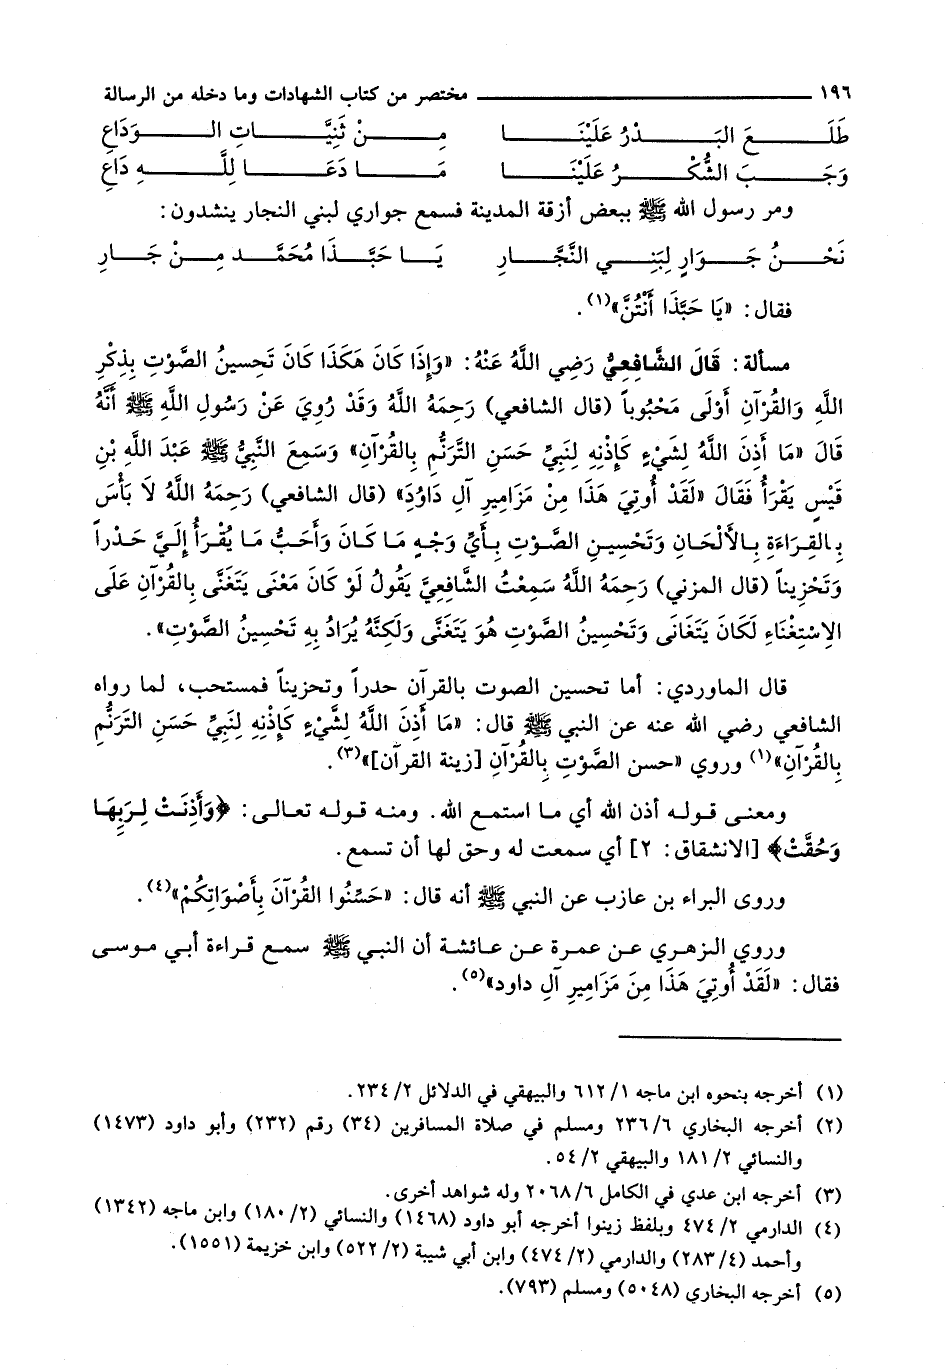 ١٩٦ ــــــــــــــــ مختصر من كتاب الشهادات وما دخله من الرسالة
طَلَـــعَ البَـــدْرُ عَلَيْنَـــا مِـــنْ ثَنِيَّـــاتِ الـــوَدَاعِ
وَجَـــبَ الشُّكْـــرُ عَلَيْنَـــا مَـــا دَعَـــا لِلَّـــهِ دَاعِ
ومر رسول الله ﷺ ببعض أزقة المدينة فسمع جواري لبني النجار ينشدون:
نَحْـــنُ جَـــوَارٍ لِبَنِـــي النَّجَّـــارِ يَـــا حَبَّـــذَا مُحَمَّـــد مِـــنْ جَـــارِ
فقال: «يَا حَبَّذَا أَنْتُنَّ»(١).
مسألة: قَالَ الشَّافِعِيُّ رَضِي اللَّهُ عَنْهُ: «وَإِذَا كَانَ هَكَذَا كَانَ تَحِسينُ الصَّوْتِ بِذِكْرِ
اللَّهِ وَالقُرْآنِ أَوْلَى مَحْبُوباً (قال الشافعي) رَحِمَهُ اللَّهُ وَقَدْ رُوِيَ عَنْ رَسُولِ اللَّهِ ﷺ أَنَّهُ
قَالَ «مَا أَذِنَ اللَّهُ لِشَيْءٍ كَإِذْنِهِ لِنَبِيٍّ حَسَنِ التَّرَنُّمِ بِالقُرْآنِ» وَسَمِعَ النَّبِيُّ ﷺ عَبْدَ اللَّهِ بْنِ
قَيْسٍ يَقْرَأُ فَقَالَ «لَقَدْ أُوتِيَ هَذَا مِنْ مَزَامِيرِ آلِ دَاوُدَ» (قال الشافعي) رَحِمَهُ اللَّهُ لاَ بَأْسَ
بِالقِرَاءَةِ بِالأَلْحَانِ وَتَحْسِينِ الصَّوْتِ بِأَيِّ وَجْهٍ مَا كَانَ وَأَحَبُّ مَا يُقْرَأُ إِلَيَّ حَدْراً
وَتَحْزِيناً (قال المزني) رَحِمَهُ اللَّهُ سَمِعْتُ الشَّافِعِيَّ يَقُولُ لَوْ كَانَ مَعْنَى يَتَغَنَّى بِالقُرْآنِ عَلَى
الاِسْتِغْنَاءِ لَكَانَ يَتَغَانَى وَتَحْسِينُ الصَّوْتِ هُوَ يَتَغَنَّى وَلَكِنَّهُ يُرَادُ بِهِ تَحْسِينُ الصَّوْتِ».
قال الماوردي: أما تحسين الصوت بالقرآن حدراً وتحزيناً فمستحب، لما رواه
الشافعي رضي الله عنه عن النبي ﷺ قال: «مَا أَذِنَ اللَّهُ لِشَيْءٍ كَإِذْنِهِ لِنَبِيٍّ حَسَنِ التَرَنُّمِ
بِالقُرْآنِ»(١) وروي «حسن الصَّوْتِ بِالقُرْآنِ [زينة القرآن]»(٣).
ومعنى قوله أذن الله أي ما استمع الله. ومنه قوله تعالى: ﴿وَأَذِنَتْ لِرَبِهَا
وَحُقَّتْ﴾ [الانشقاق: ٢] أي سمعت له وحق لها أن تسمع.
وروى البراء بن عازب عن النبي ﷺ أنه قال: «حَسِّنُوا القُرْآنَ بِأَصْوَاتِكُمْ»(٤).
وروي الزهري عن عمرة عن عائشة أن النبي ﷺ سمع قراءة أبي موسى
فقال: «لَقَدْ أُوتِيَ هَذَا مِنَ مَزَامِيرِ آلِ داود»(٥).
(١) أخرجه بنحوه ابن ماجه ١/ ٦١٢ والبيهقي في الدلائل ٢/ ٢٣٤.
(٢) أخرجه البخاري ٦/ ٢٣٦ ومسلم في صلاة المسافرين (٣٤) رقم (٢٣٢) وأبو داود (١٤٧٣)
والنسائي ٢/ ١٨١ والبيهقي ٢/ ٥٤.
(٣) أخرجه ابن عدي في الكامل ٦/ ٢٠٦٨ وله شواهد أخرى.
(٤) الدارمي ٢/ ٤٧٤ وبلفظ زينوا أخرجه أبو داود (١٤٦٨) والنسائي (٢/ ١٨٠) وابن ماجه (١٣٤٢)
وأحمد (٤/ ٢٨٣) والدارمي (٢/ ٤٧٤) وابن أبي شيبة (٢/ ٥٢٢) وابن خزيمة (١٥٥١).
(٥) أخرجه البخاري (٥٠٤٨) ومسلم (٧٩٣).